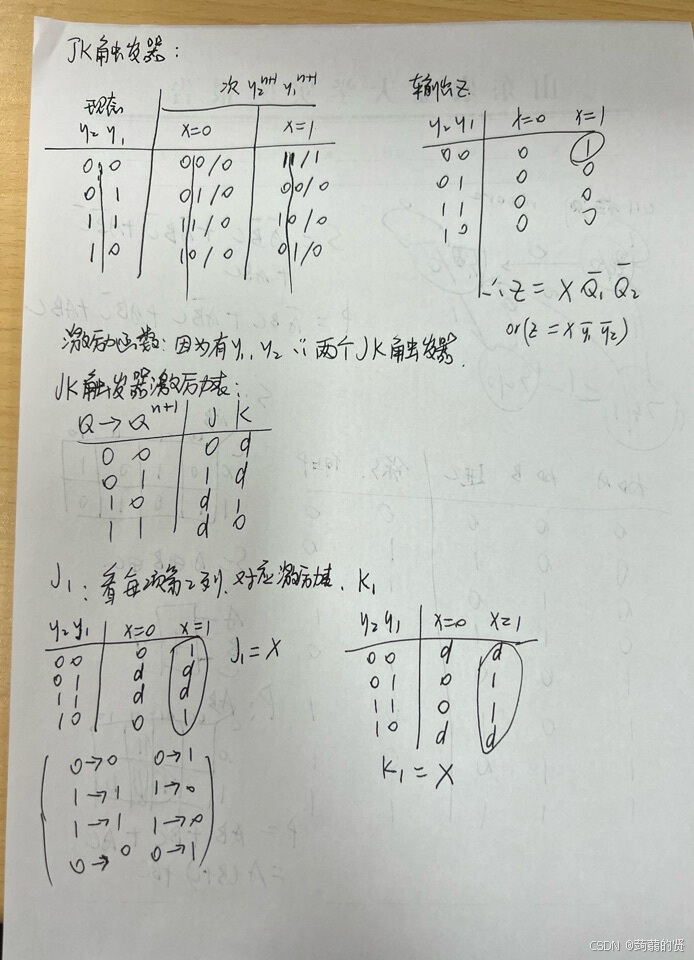 JK触发器:
现态 次 y₂ⁿ⁺¹ y₁ⁿ⁺¹
y₂ y₁ x=0 x=1
0 0 00/0 11/1
0 1 01/0 00/0
1 1 11/0 10/0
1 0 10/0 01/0
输出Z
y₂ y₁ x=0 x=1
0 0 0 1
0 1 0 0
1 1 0 0
1 0 0 0
∴Z = X Q̄₁ Q̄₂
or(Z = x ȳ₁ ȳ₂)
激励函数: 因为有y₁、y₂ ∴ 两个JK触发器.
JK触发器激励表:
Q → Qⁿ⁺¹ J K
0 0 0 d
0 1 1 d
1 0 d 1
1 1 d 0
J₁: 看每项第2列, 对应激励表. K₁
y₂ y₁ x=0 x=1
0 0 0 1
0 1 d d
1 1 d d
1 0 0 1
J₁ = X
0→0 0→1
1→1 1→0
1→1 1→0
0→0 0→1
y₂ y₁ x=0 x=1
0 0 d d
0 1 0 1
1 1 0 1
1 0 d d
K₁ = X
CSDN @蒟蒻的贤